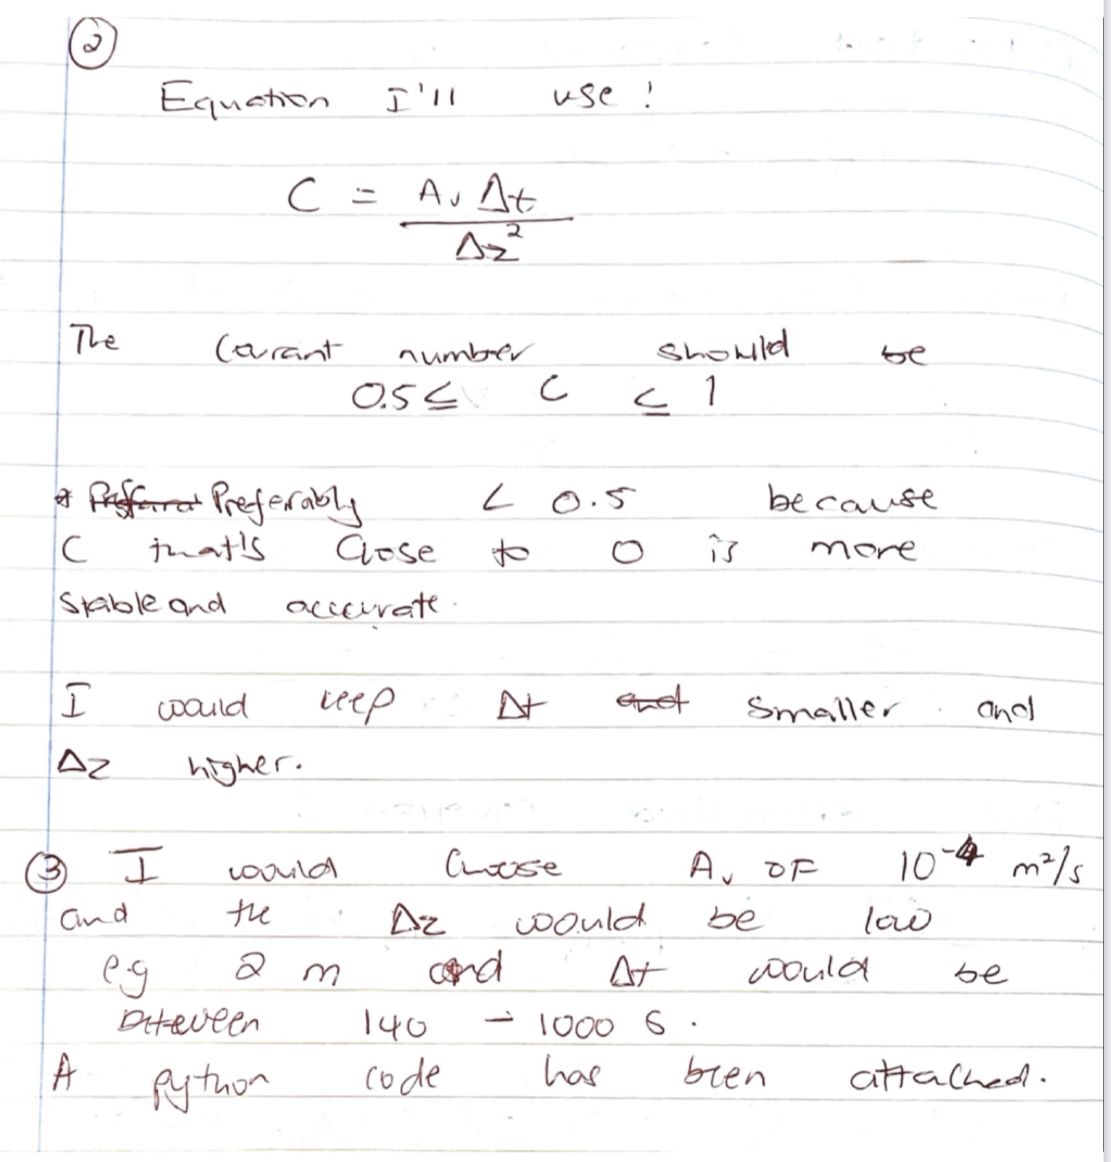 ②
Equation I'll use!
C = Aᵥ Δt / Δz²
The Courant number should be
0.5 ≤ C ≤ 1
* Preferably < 0.5 because
C that's close to 0 is more
stable and acccurate.
I would keep Δt smaller and
Δz higher.
③ I would choose Aᵥ OF 10⁻⁴ m²/s
and the Δz would be low
e.g 2 m and Δt would be
between 140 - 1000 s.
A python code has been attached.